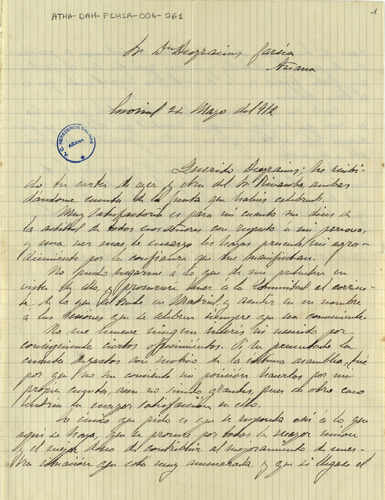 ATHA-DAH-FCHSA-006-061
1
Sr Dn Deogracias García
Añana
22 Mayo del 912
AÑANA
Querido Deogracias: He recibi-
do tu carta de ayer y otra del Sr ambas
dandome cuenta de la junta que habeis celebrado.
Muy satisfactorio es para mi cuanto me dices de
la actitud de todos con respeto a mi persona,
y una vez mas te encargo les hagas presente mi agra-
decimiento por la confianza que me
No puedo negarme a lo que de mi pretenden en
vista de ello y procuraré tener a la Comunidad al corrien-
te de lo que se trate en Madrid y asistir en su nombre
a las sesiones que se celebren siempre que sea conveniente.
No me mueve ningun interés ni necesito por
consiguiente ciertos ofrecimientos. Si no presenté la
cuenta de gastos con motivo de la última asamblea, fué
por que no me consiente mi posicion hacerlos por mi
propia cuenta, aun no siendo grandes, pues de otro modo
tendria la mayor satisfaccion en ello.
Lo unico que pido es que se responda ahí a lo que
aqui se haga, que se procure por todos la mayor union
y el mejor deseo de contribuir al mejoramiento de nues-
tra situacion que está muy amenazada y que si llegado el